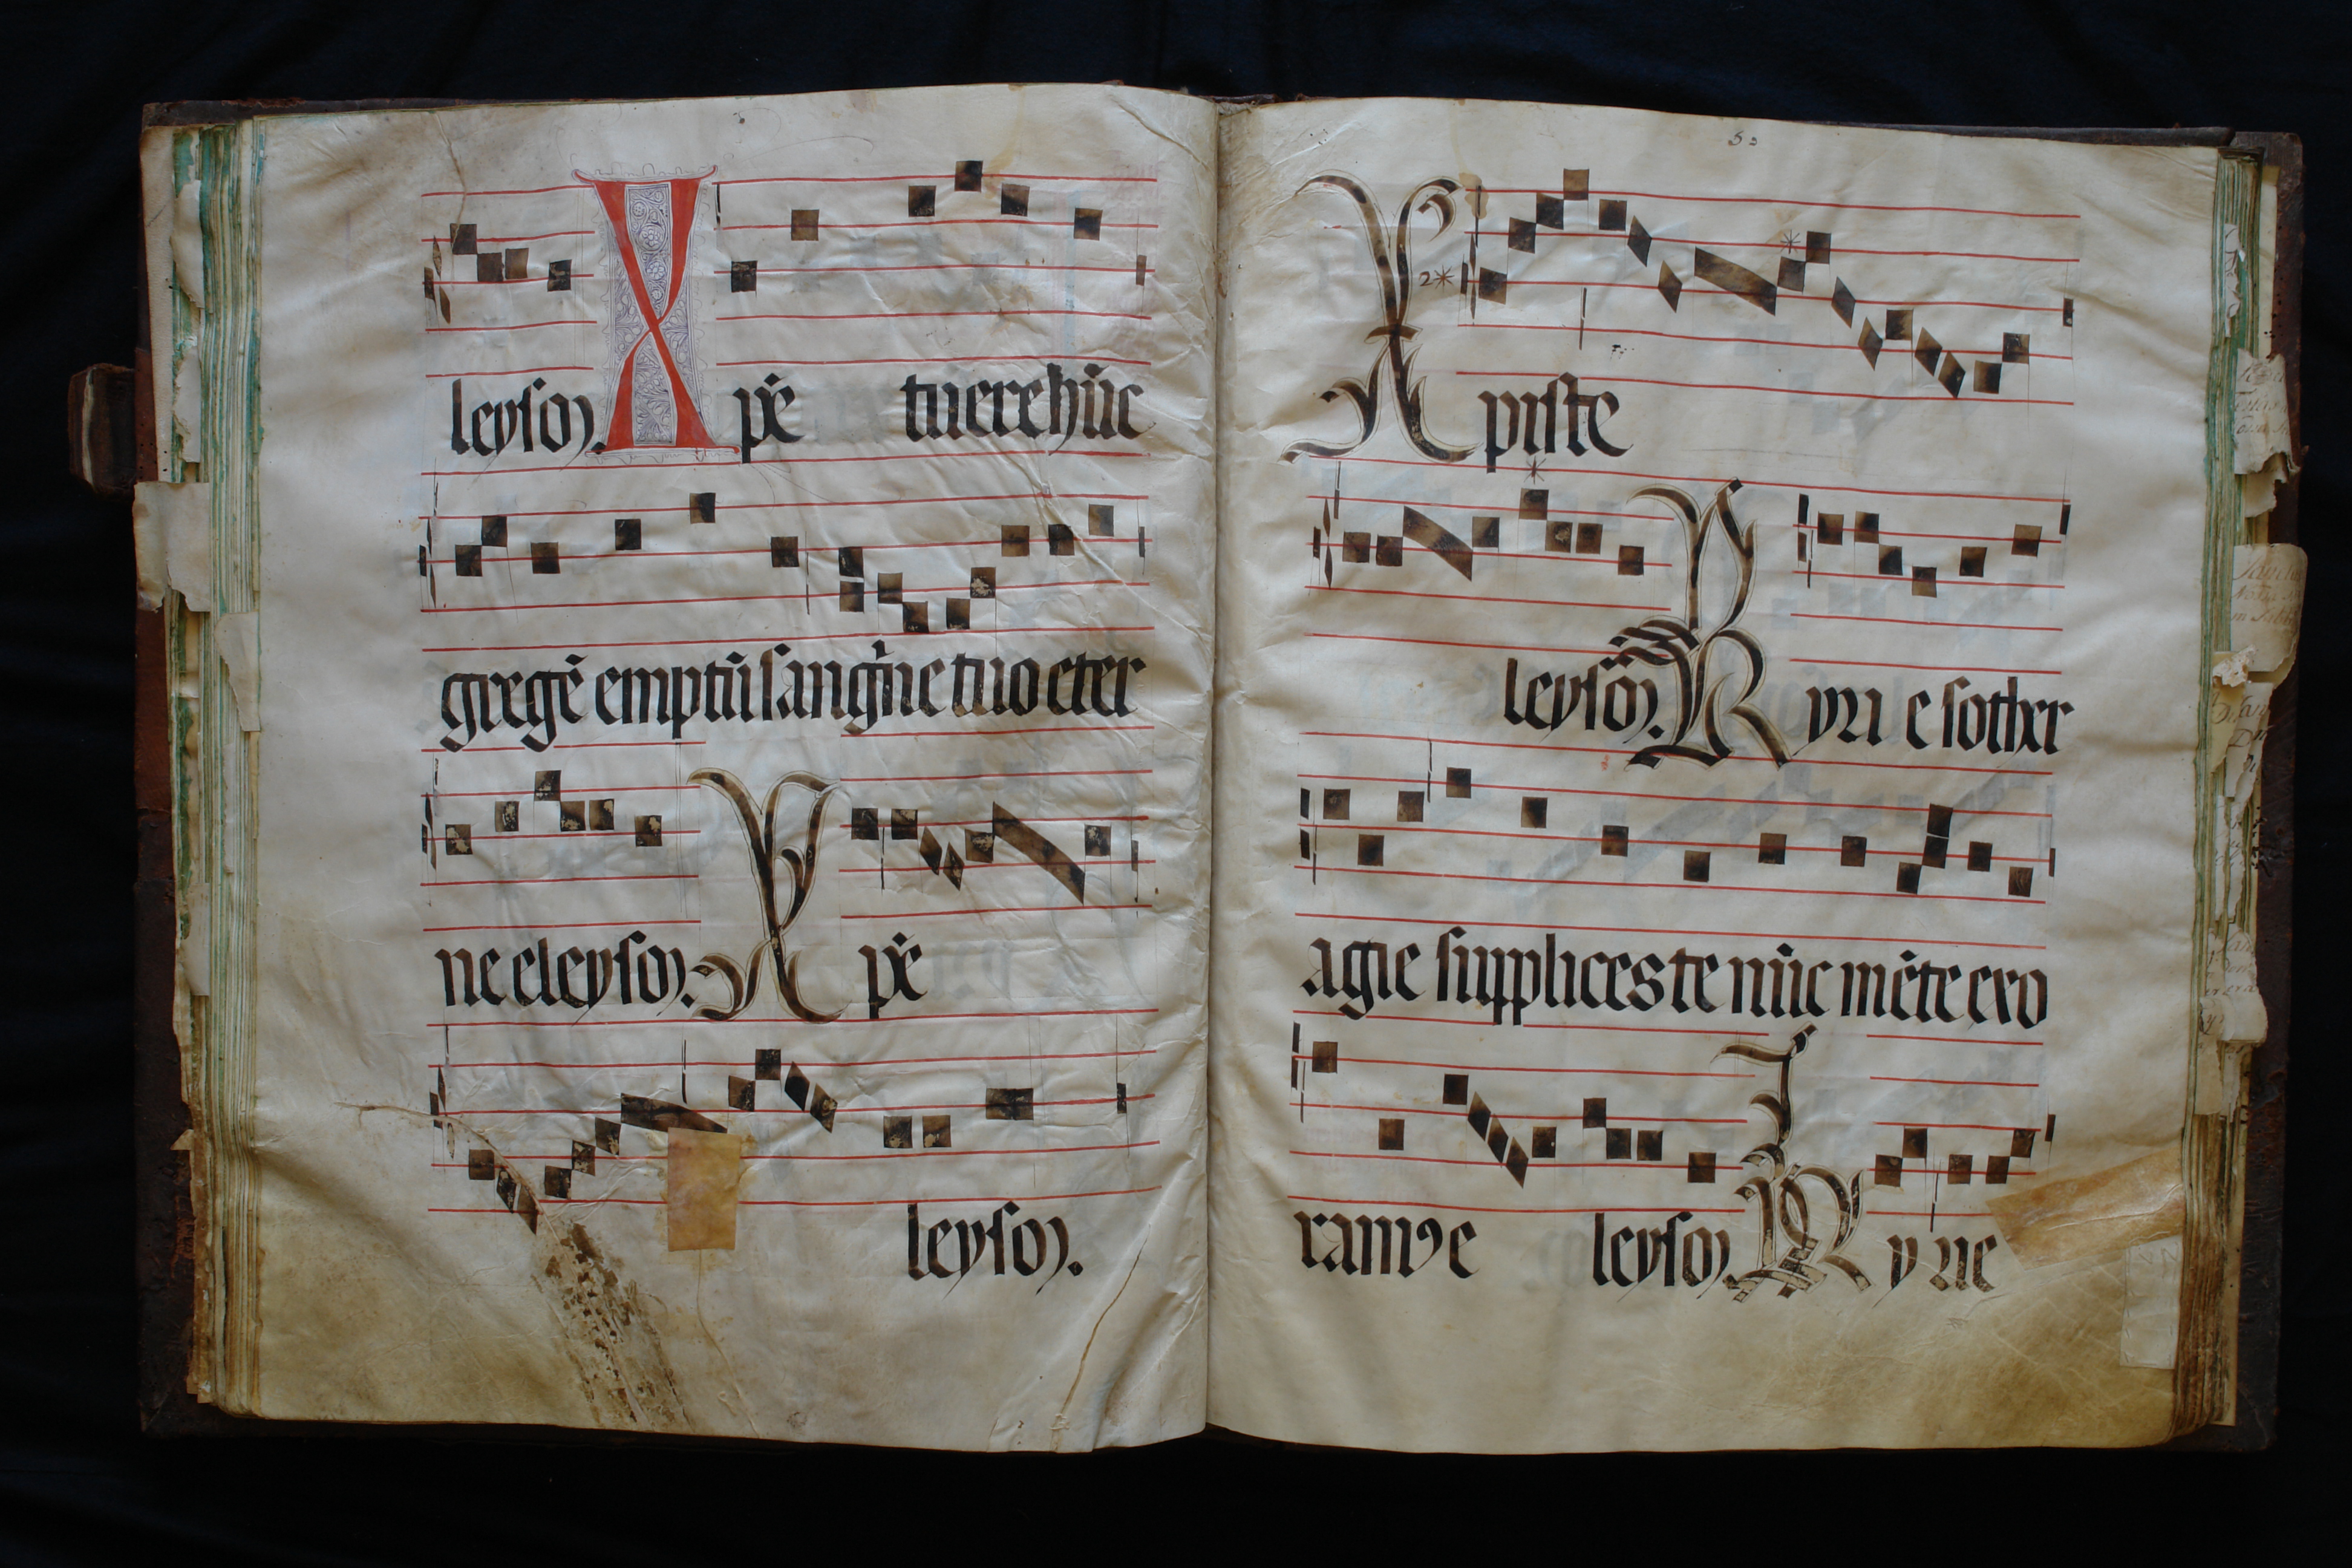 leyson. X pē tuere hūc
gregē emptū sangⁱne tuo eter
ne eleyson. X pē
leyson.
50
2*
X piste
leyson. K yri e sother
agie supplices te nūc mēte exo
ramꝰ e leyson. K yrie